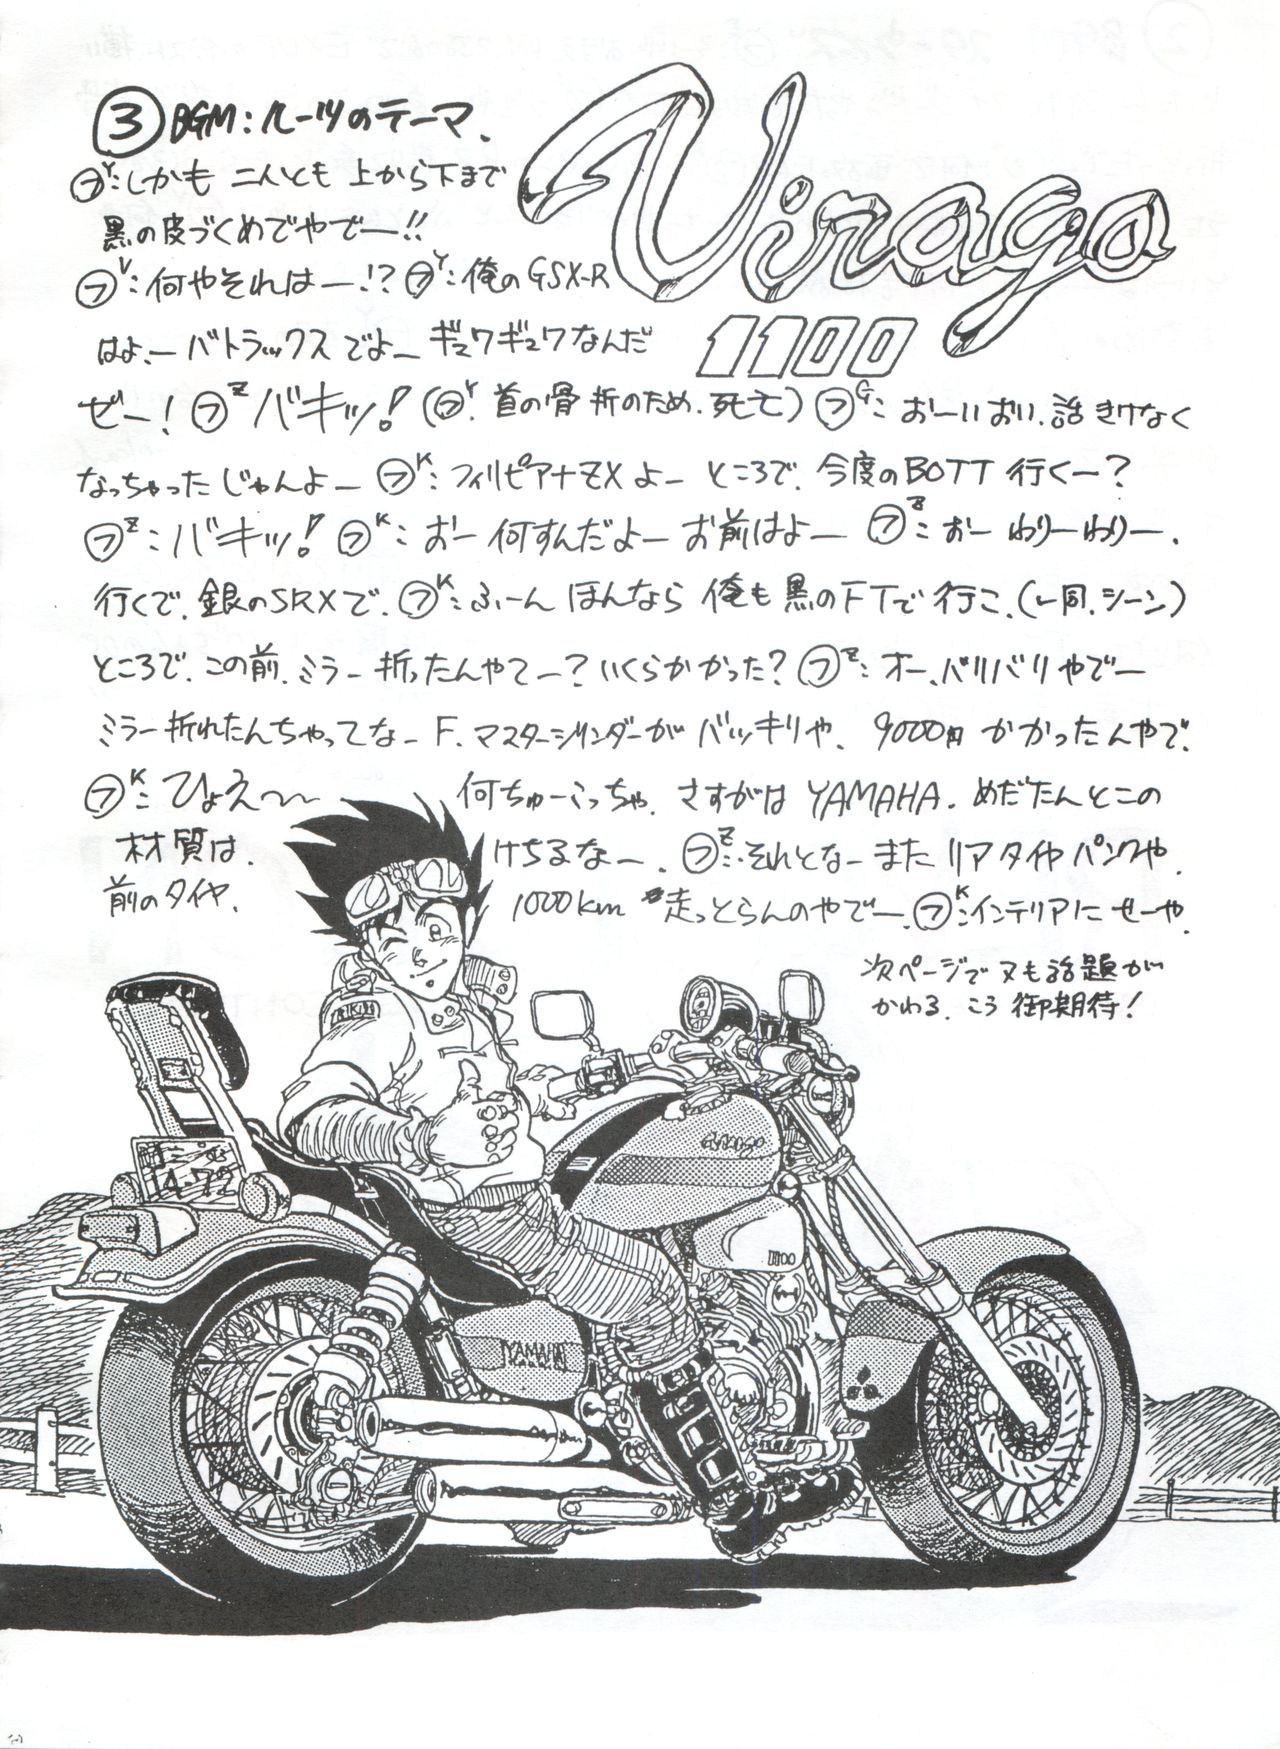 ③ BGM:ルーツのテーマ.
Virago
1100
㋫Y:しかも 二人とも 上から下まで
黒の皮づくめでやでー!!
㋫V:何やそれはー!? ㋫Y:俺のGSX-R
はよーバトラックスでよー ギュワギュワなんだ
ぜー! ㋫Z バキッ! (㋫Y. 首の骨 折のため.死亡) ㋫G: おーいおい.話きけなく
なっちゃったじゃんよー ㋫K:フィリピアナZXよー ところで.今度のBOTT 行くー?
㋫Z:バキッ! ㋫K:おー 何すんだよー お前はよー ㋫Z:おー わりーわりー.
行くで.銀のSRXで. ㋫K:ふーん ほんなら 俺も黒のFTで行こ.(レ同.シーン)
ところで.この前.ミラー折ったんやてー?いくらかかった? ㋫Z:オー.バリバリやでー
ミラー折れたんちゃってなー F.マスターシリンダーがバッキリや. 9000円 かかったんやで.
㋫K:ひょえ〜〜 何ちゅーこっちゃ. さすがは YAMAHA. めだたんとこの
材質は. けちるなー. ㋫Z:.それとなー また リアタイヤ パンクや.
前のタイヤ. 1000km 走っとらんのやでー. ㋫K:インテリアに せーや.
次ページでヌも話題が
かわる.こう御期待!
Virago
14-72
1100
YAMAHA